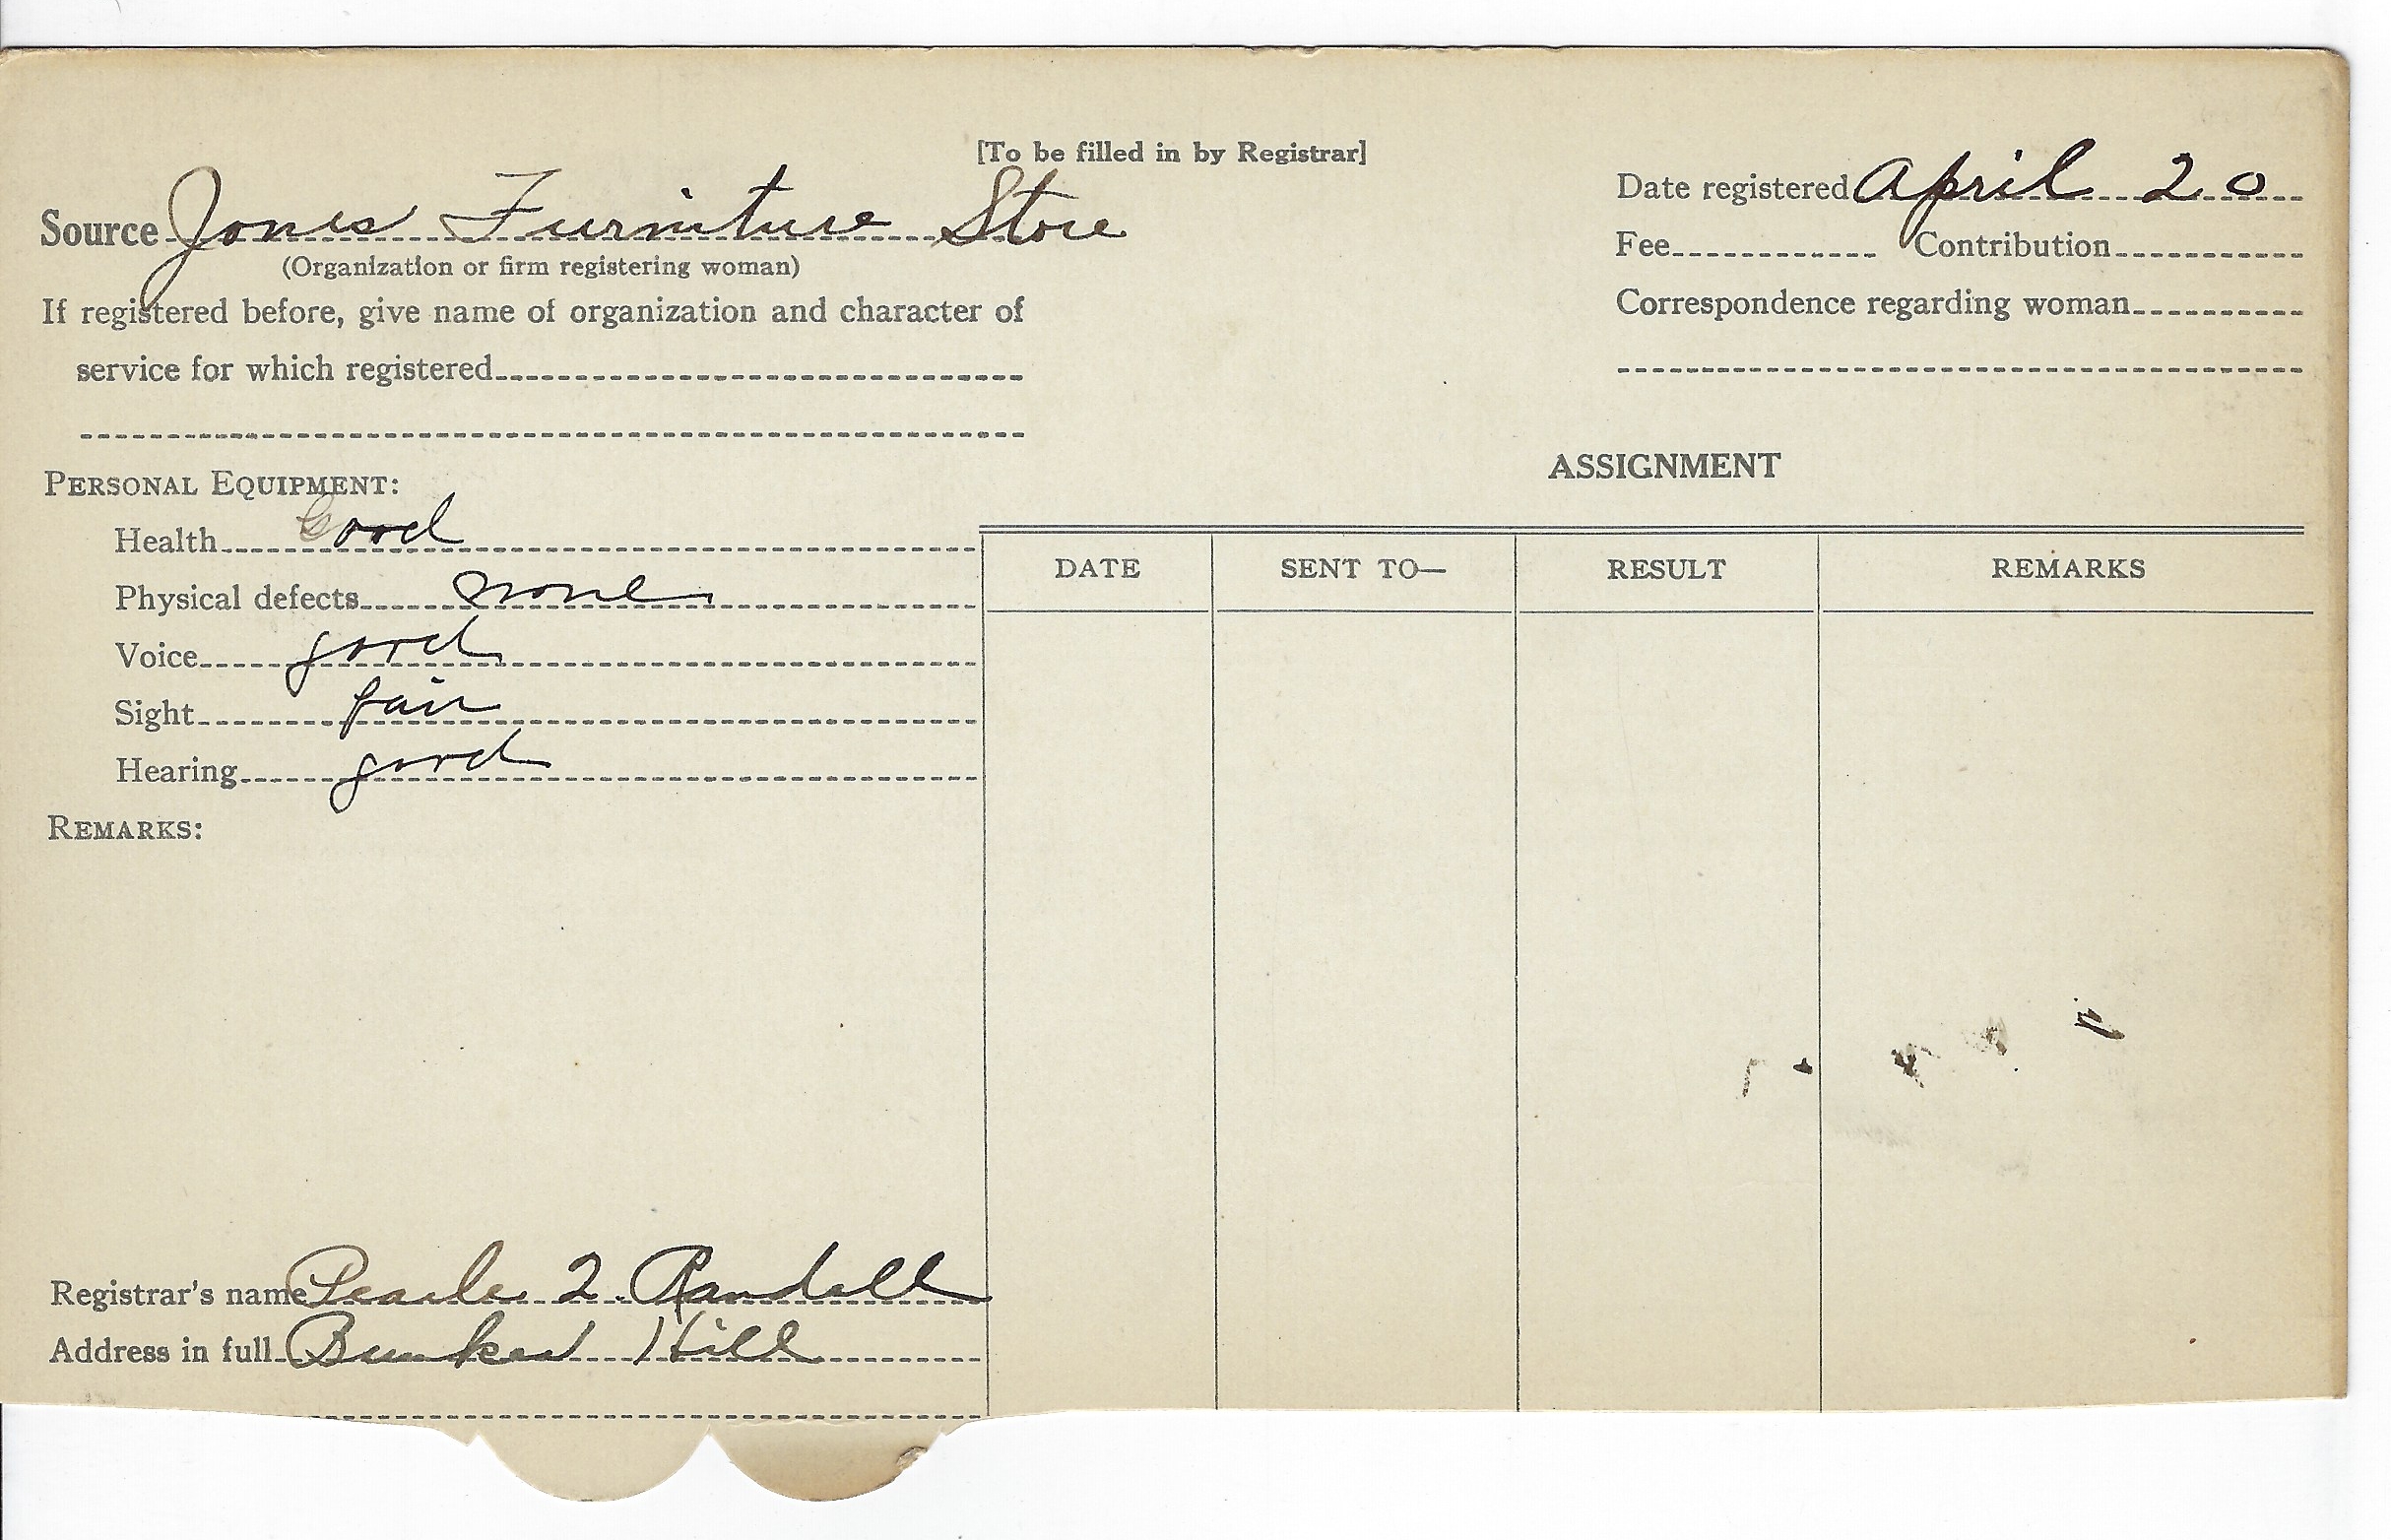 [To be filled in by Registrar]
Source Jones Furniture Store
(Organization or firm registering woman)
If registered before, give name of organization and character of
service for which registered
Date registered April 20
Fee Contribution
Correspondence regarding woman
PERSONAL EQUIPMENT:
Health Good
Physical defects none
Voice good
Sight fair
Hearing good
REMARKS:
ASSIGNMENT
DATE SENT TO— RESULT REMARKS
Registrar's name Pearle Randall
Address in full Bunker Hill